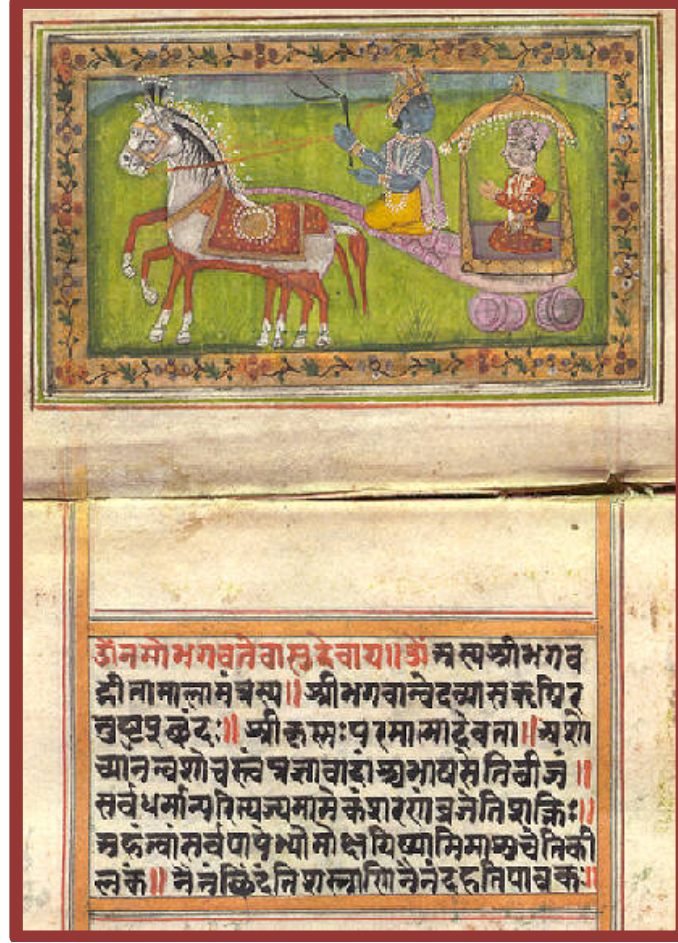 ॐनमोभगवतेवासुदेवाय॥ॐ अस्यश्रीभगव
द्गीतामालामंत्रस्य॥ श्रीभगवान्वेदव्यासऋषिर
नुष्टुप्छंदः॥ श्रीकृष्णःपरमात्मादेवता॥ अशो
च्यानन्वशोचस्त्वंप्रज्ञावादांश्चभाषसेतिबीजं॥
सर्वधर्मान्परित्यज्यमामेकंशरणंव्रजेतिशक्तिः॥
अहंत्वांसर्वपापेभ्योमोक्षयिष्यामिमाशुचेतिकी
लकं॥ नैनंछिंदंतिशस्त्राणिनैनंदहतिपावकः॥